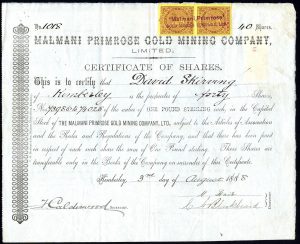 No. 1018 40 Shares.
"Malmani Primrose"
MALMANI PRIMROSE GOLD MINING COMPANY,
LIMITED.
CERTIFICATE OF SHARES.
This is to certify that David
Kimberley is the proprietor of forty Shares,
Nos. of the value of ONE POUND STERLING each, in the Capital
Stock of THE MALMANI PRIMROSE GOLD MINING COMPANY, LTD., subject to the Articles of Association
and the Rules and Regulations of the Company, and that there has been paid
in respect of each such share the sum of One Pound sterling. These Shares are
transferable only in the Books of the Company on surrender of this Certificate.
Kimberley, 3rd day of August 1888